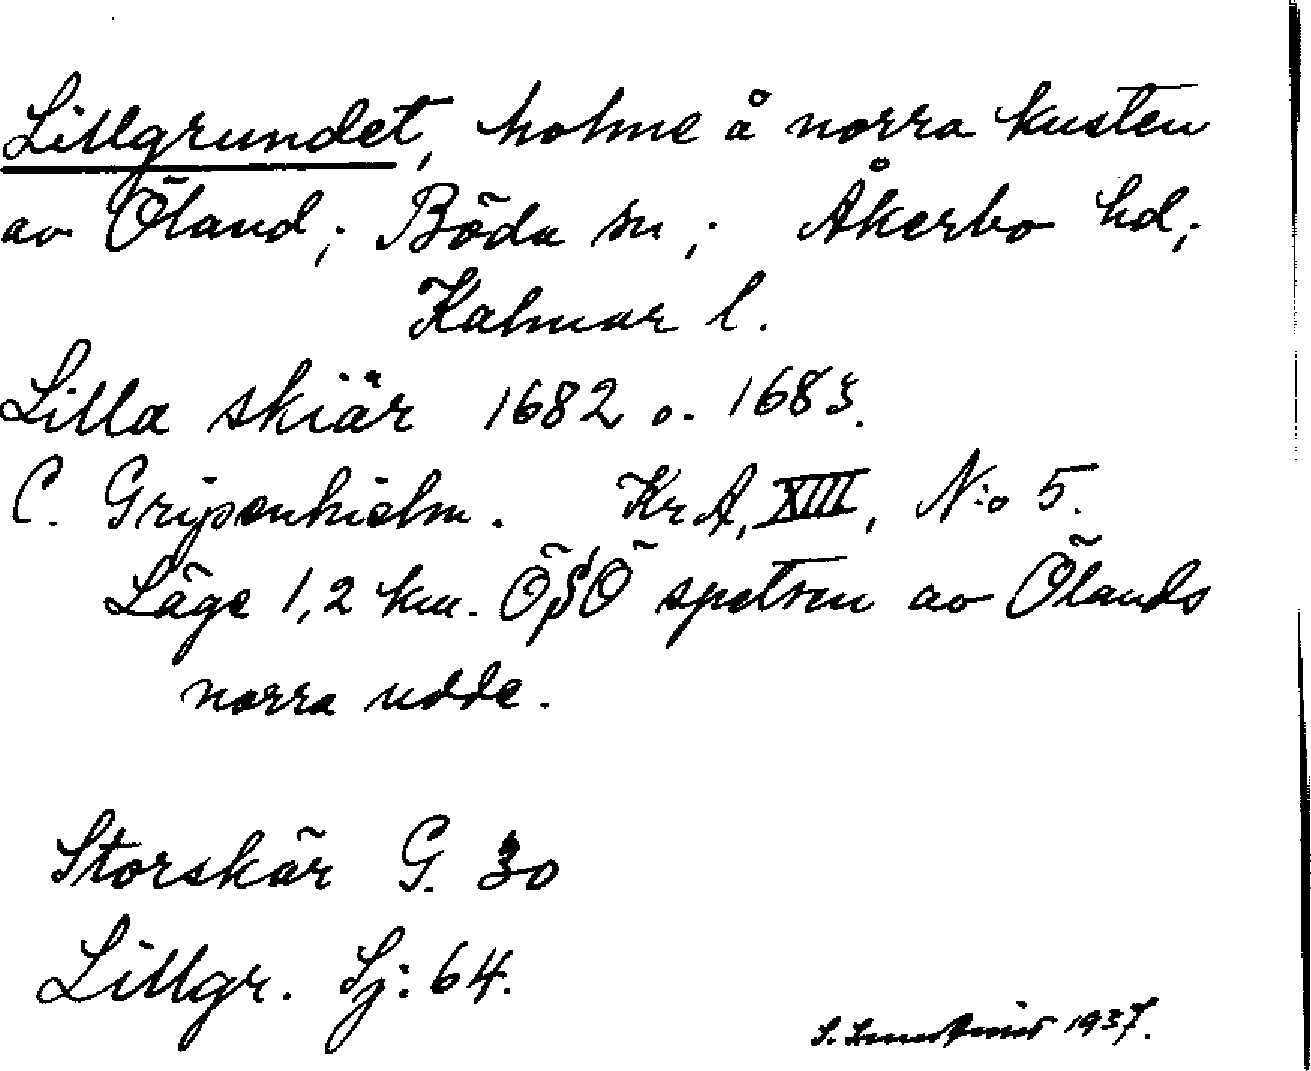 Lillgrundet, holme å norra kusten
av Öland; Böda sn; Åkerbo hd;
Kalmar l.
Lilla skiär 1682 o. 1683.
C. Gripenhielm. KrA, XIII, N:o 5.
Läge 1,2 km. ÖSÖ spetsen av Ölands
norra udde.
Storskär G. 30
Lillgr. Sj: 64.
S. 1937.